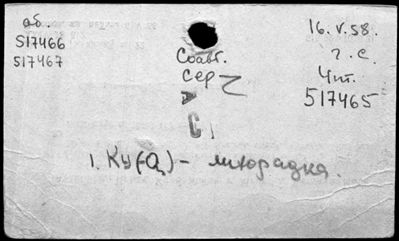 об.
517466
517467
16.V.58.
г.с.
Чит.
517465
Соавт.
сер
А
С
1. Ку(-Q) - лихорадка.